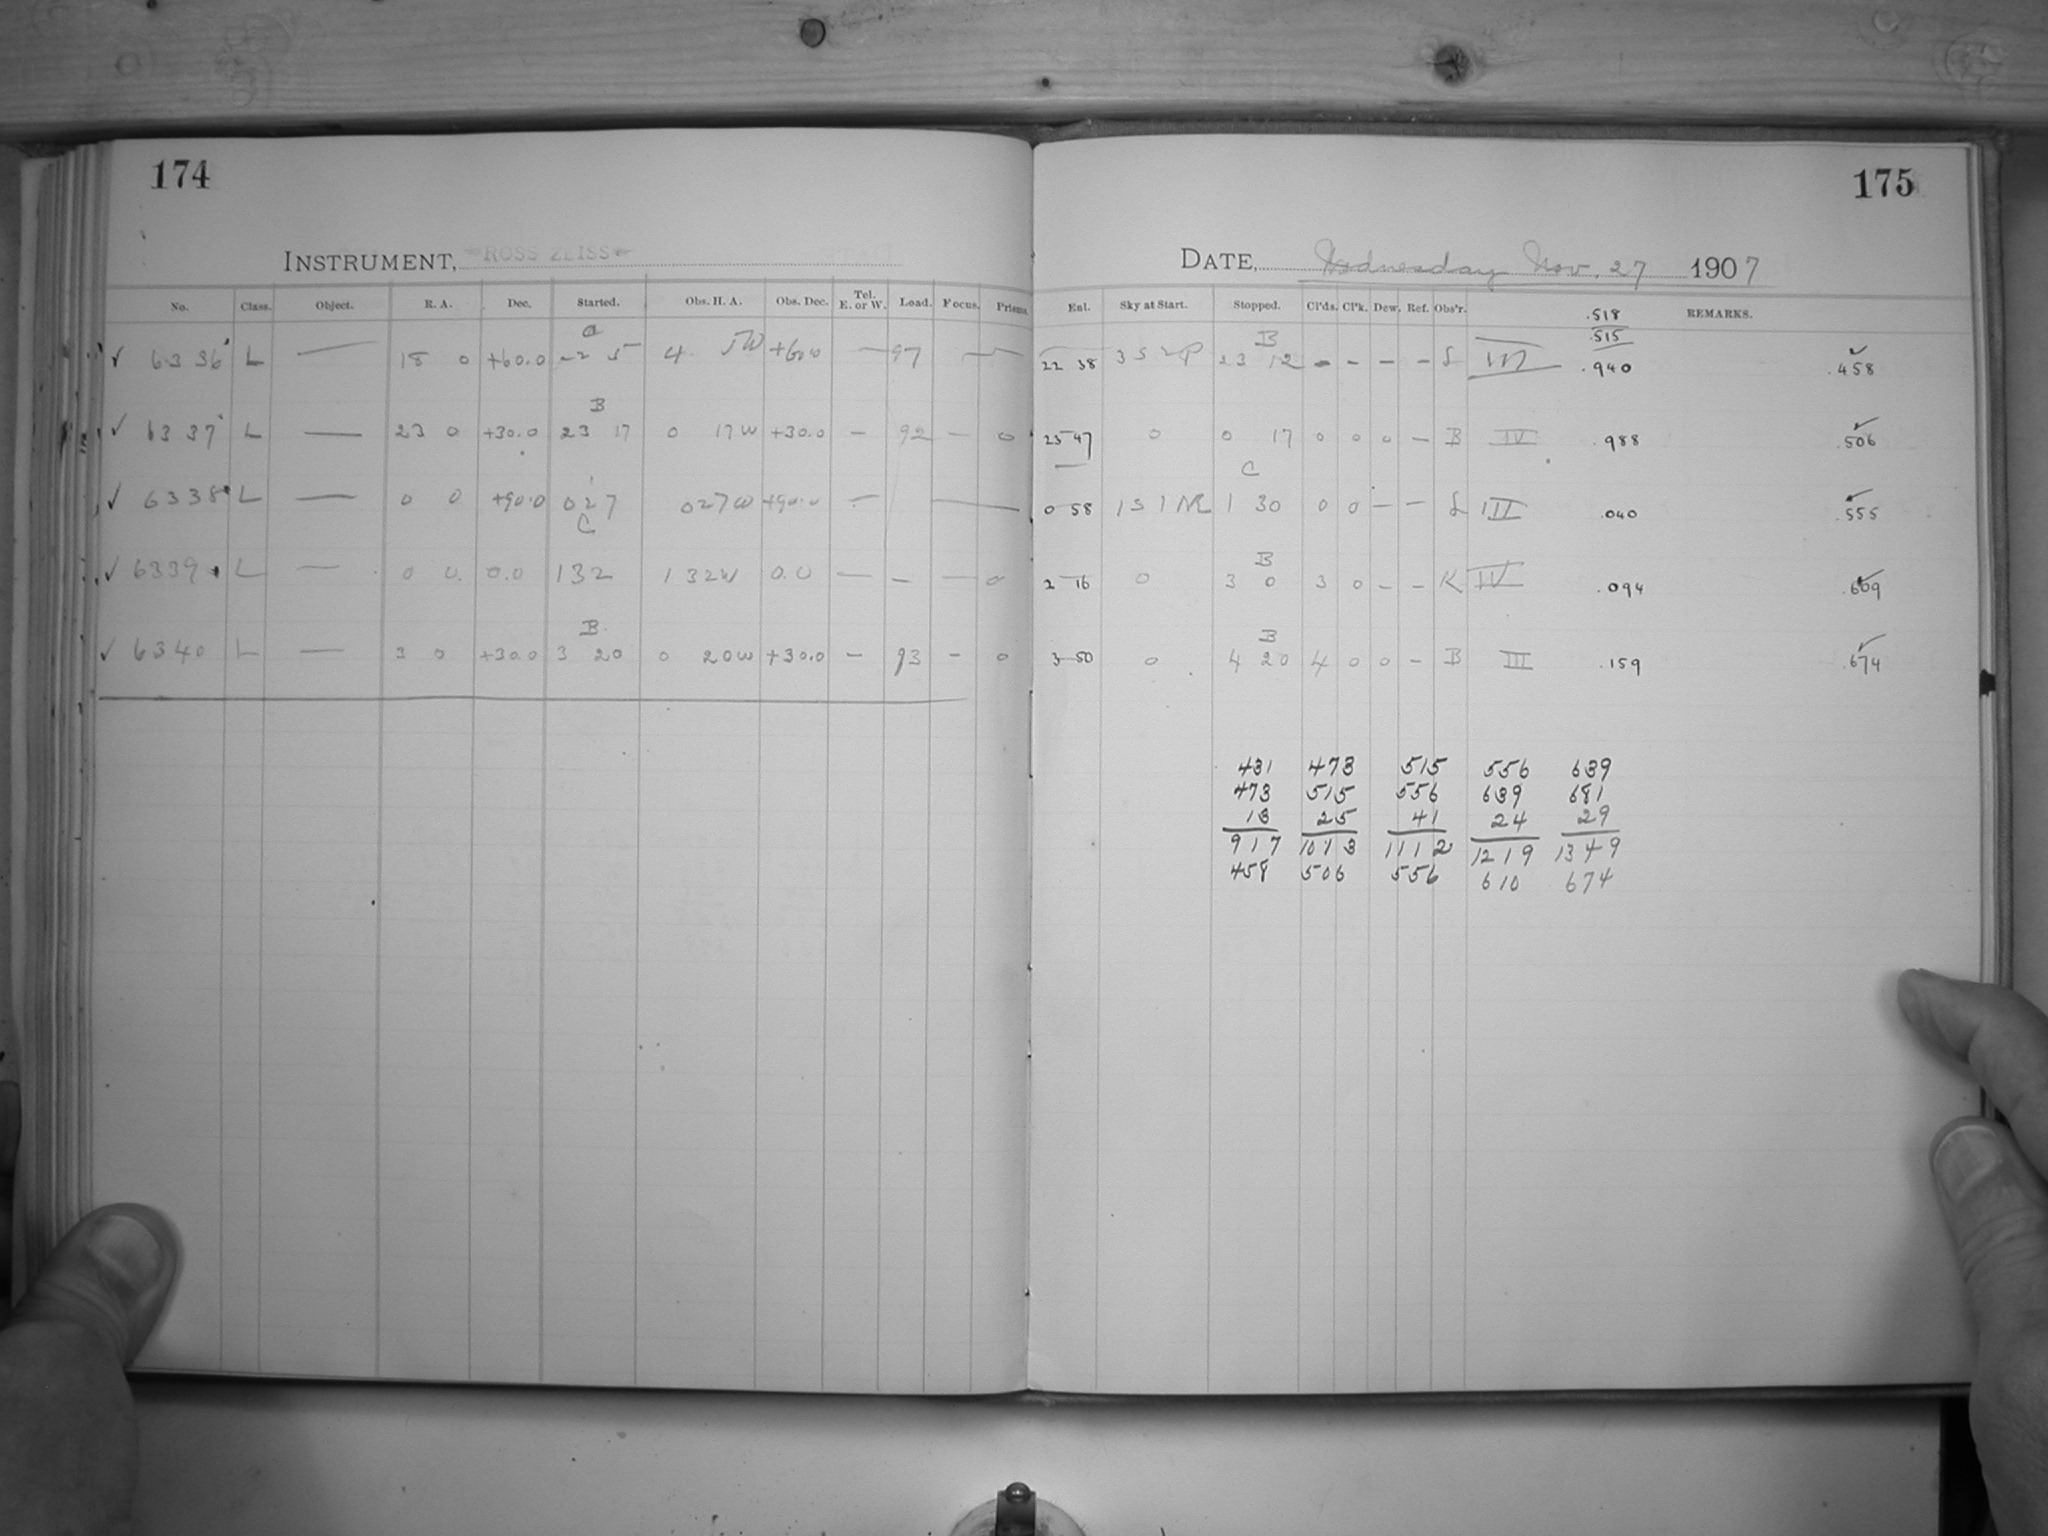 174
175
INSTRUMENT, ROSS ZEISS
DATE, Wednesday Nov. 27 1907
No. Class. Object. R. A. Dec. Started. Obs. H. A. Obs. Dec. Tel. E. or W. Load. Focus. Prisms. Ent. Sky at Start. Stopped. Cl'ds. Cl'k. Dew. Ref. Obs'r. REMARKS.
.518
.515
a B
✓ 6336 L — 18 0 +60.0 22 5 4 5W +60.0 — 97 — 22 38 3 S 2 P 23 12 - - - - S III .940 .458
B
✓ 6337 L — 23 0 +30.0 23 17 0 17W +30.0 — 92 — 0 23 47 0 0 17 0 0 0 — B IV .988 .506
C
✓ 6338 L — 0 0 +90.0 0 27 0 27W +90.0 — — 0 58 1 S 1 1 30 0 0 — — S III .040 .555
C B
✓ 6339 L — 0 0 0.0 1 32 1 32W 0.0 — — — 0 2 16 0 3 0 3 0 - - K IV .094 .609
B B
✓ 6340 L — 3 0 +30.0 3 20 0 20W +30.0 — 93 — 0 3 50 0 4 20 4 0 0 — B III .159 .674
431 473 515 556 639
473 515 556 639 681
13 25 41 24 29
917 1013 1112 1219 1349
458 506 556 610 674